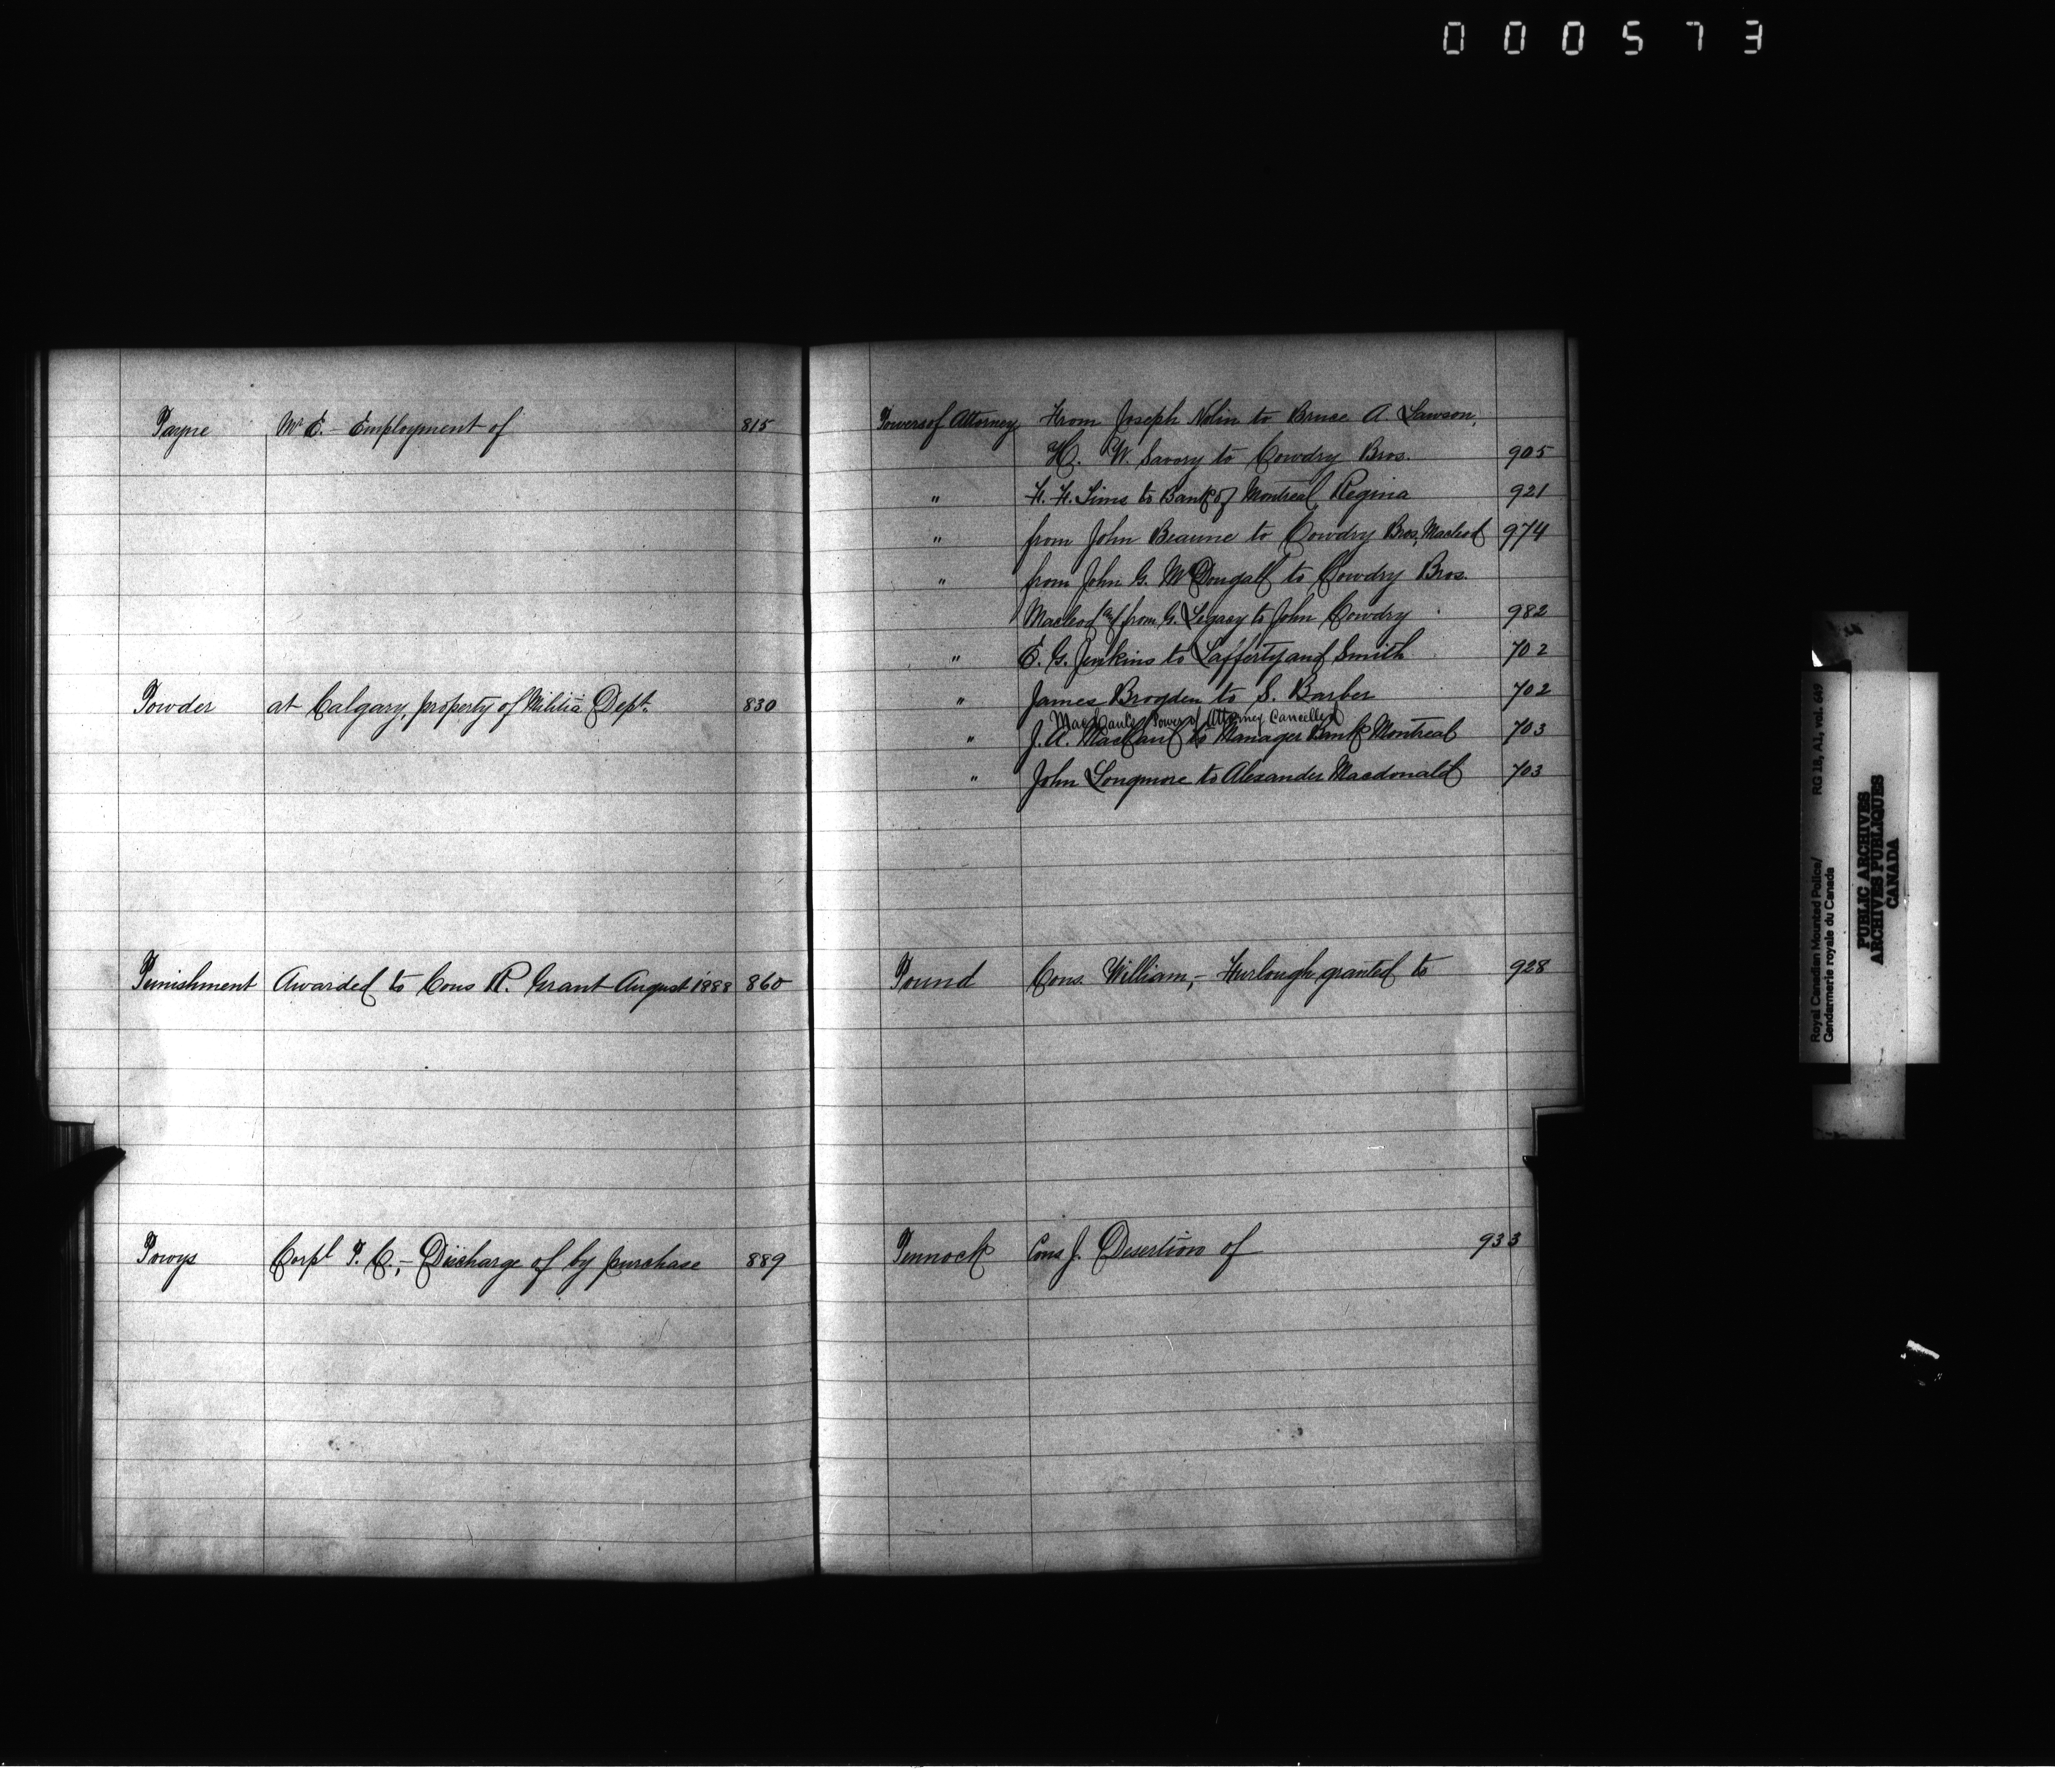 000573
Payne Mr E. - Employment of 815
Powder at Calgary, property of Militia Dept. 830
Punishment Awarded to Cons R. Grant August 1888 860
Powys Corpl P. C., - Discharge of by purchase 889
Powers of Attorney From Joseph Nolin to Bruce A. Lawson,
H. W. Savory to Cowdry Bros. 905
" F. F. Sims to Bank of Montreal Regina 921
" from John Beaune to Cowdry Bros, Macleod 974
" from John G. McDougall to Cowdry Bros.
Macleod and from G. Legacy to John Cowdry 982
" E. G. Jenkins to Lafferty and Smith 702
" James Brogden to S. Barber 702
Power of Attorney Cancelled
" J. A. to Manager Bank Montreal 703
" John Longmore to Alexander Macdonald 703
Pound Cons. William, - Furlough granted to 928
Pennock Cons J. Desertion of 933
Royal Canadian Mounted Police/
Gendarmerie royale du Canada
RG 18, A1, vol. 649
PUBLIC ARCHIVES
ARCHIVES PUBLIQUES
CANADA